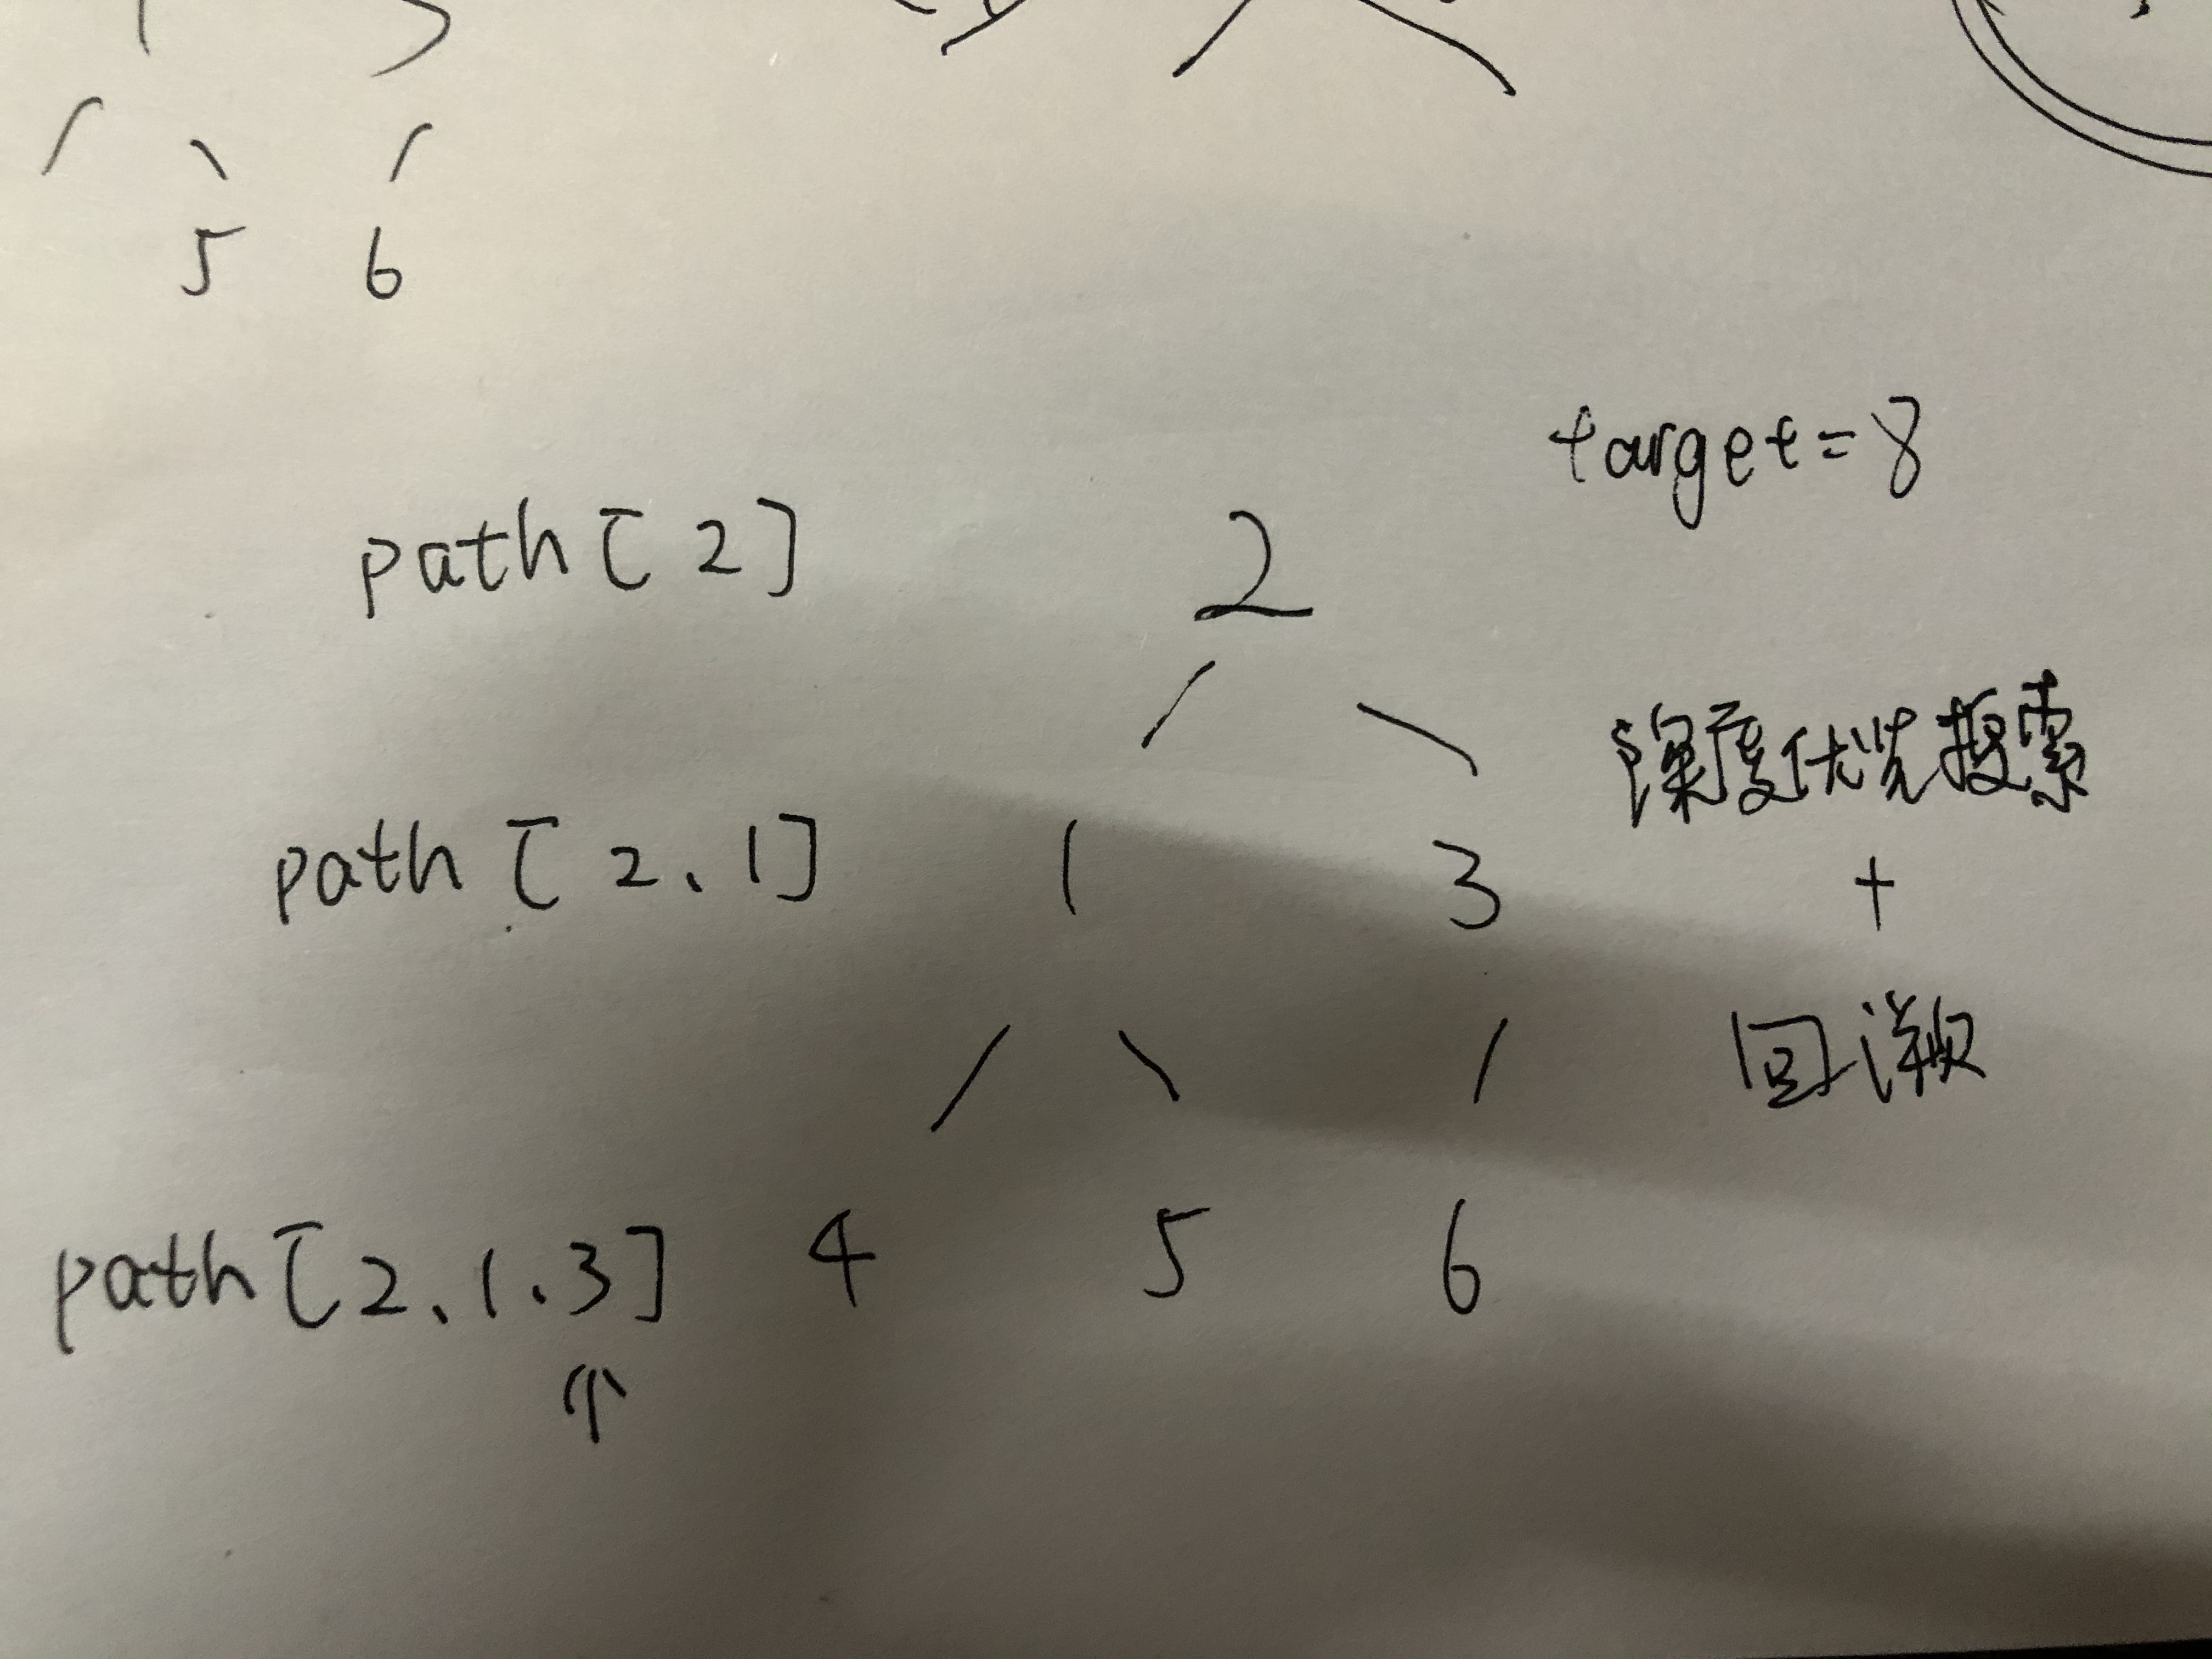 5 6
target=8
path [ 2 ] 2
深度优先搜索
path [ 2、1 ] 1 3
+
回溯
path [ 2、1、3 ] 4 5 6
↑